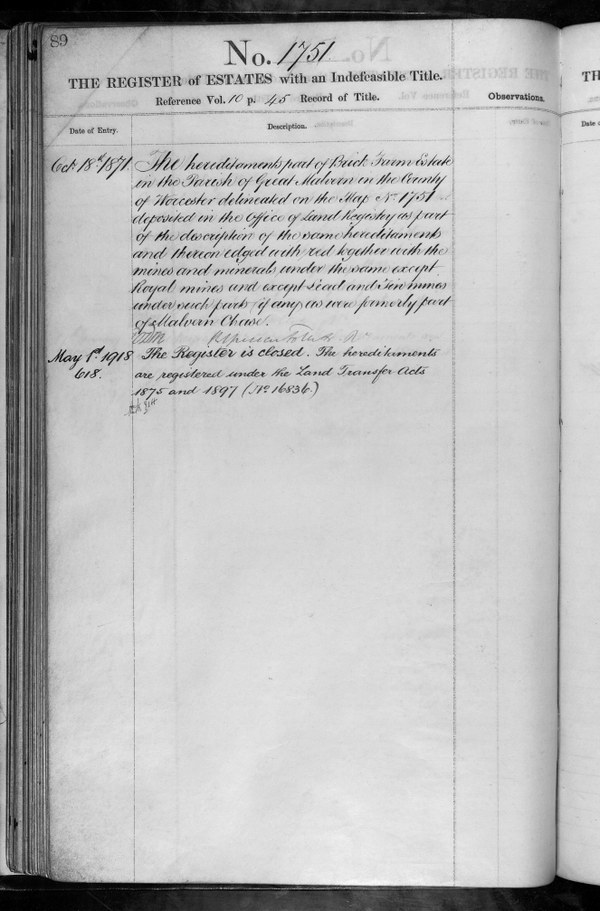 89
No. 1751
THE REGISTER of ESTATES with an Indefeasible Title.
Reference Vol. 10 p. 45 Record of Title.
Observations.
Date of Entry.
Description.
Oct 18th 1871.
The hereditaments part of Brick Farm Estate
in the Parish of Great Malvern in the County
of Worcester delineated on the Map No. 1751
deposited in the Office of Land Registry as part
of the description of the same hereditaments
and thereon edged with red together with the
mines and minerals under the same except
Royal mines and except Lead and Tin mines
under such parts (if any) as were formerly part
of Malvern Chase.
May 1st 1918
618.
The Register is closed. The hereditaments
are registered under the Land Transfer Acts
1875 and 1897 (No 16836.)
TH
Date